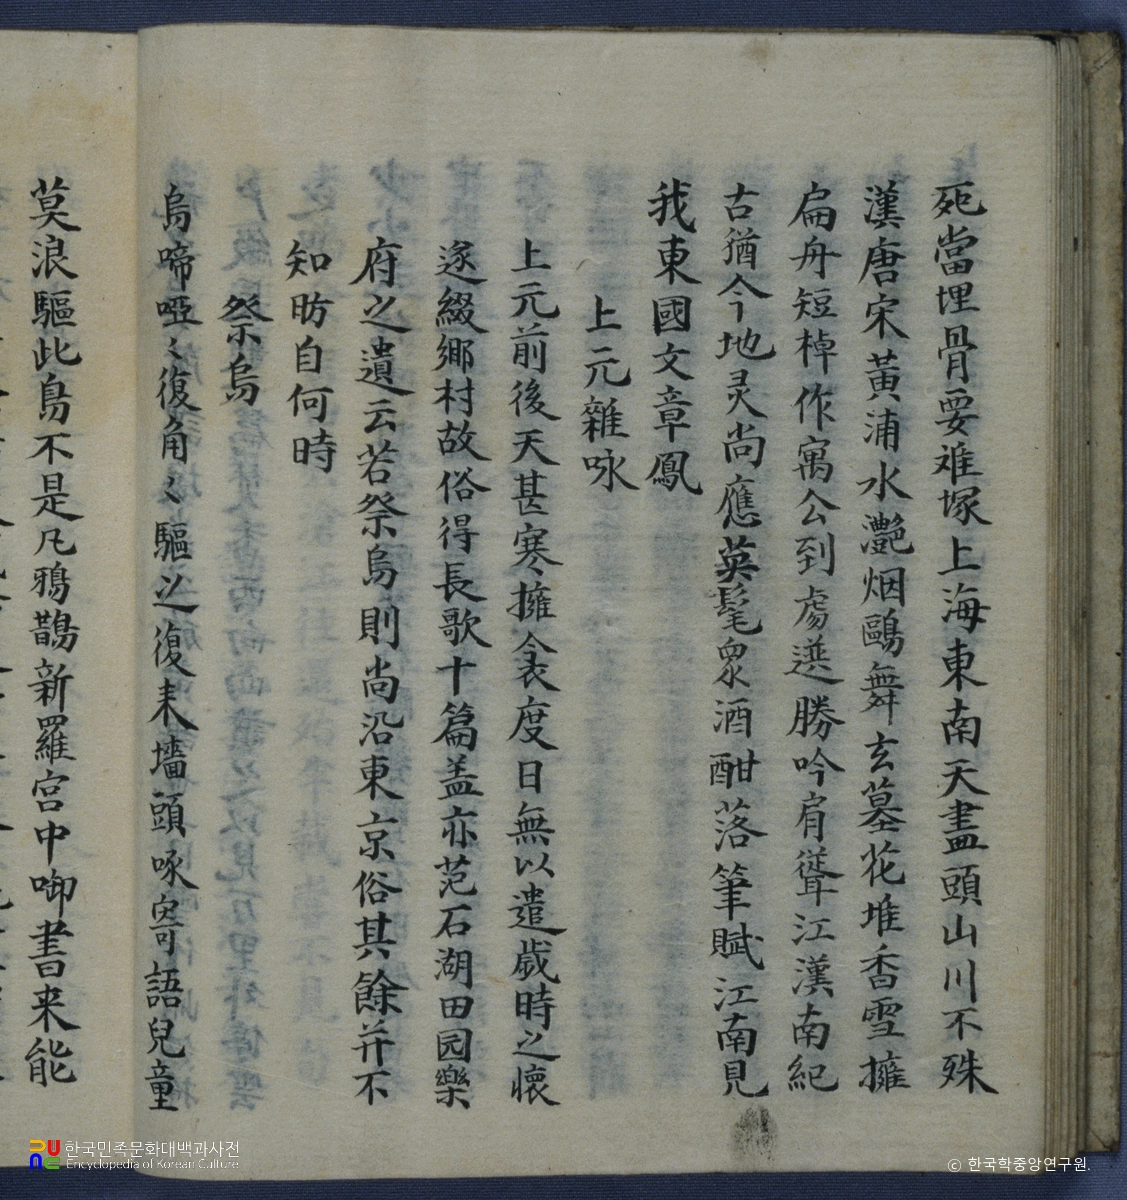 死當埋骨要难塚上海東南天盡頭山川不殊
漢唐宋黃浦水灩烟鷗舞玄墓花堆香雪擁
扁舟短棹作寓公到處選勝吟肩聳江漢南紀
古猶今地灵尚應英髦衆酒酣落筆賦江南見
我東國文章鳳
上元雜咏
上元前後天甚寒擁衾度日無以遣歲時之懷
遂綴鄉村故俗得長歌十篇盖亦范石湖田园樂
府之遺云若祭烏則尚沿東京俗其餘并不
知昉自何時
祭烏
烏啼啞々復角々驅之復来墻頭啄寄語兒童
莫浪驅此鳥不是凡鴉鵲新羅宮中啣書来能
한국민족문화대백과사전
Encyclopedia of Korean Culture
© 한국학중앙연구원.